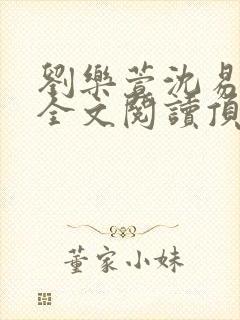 劉樂萱沈易
全文閱讀頂
董家小妹